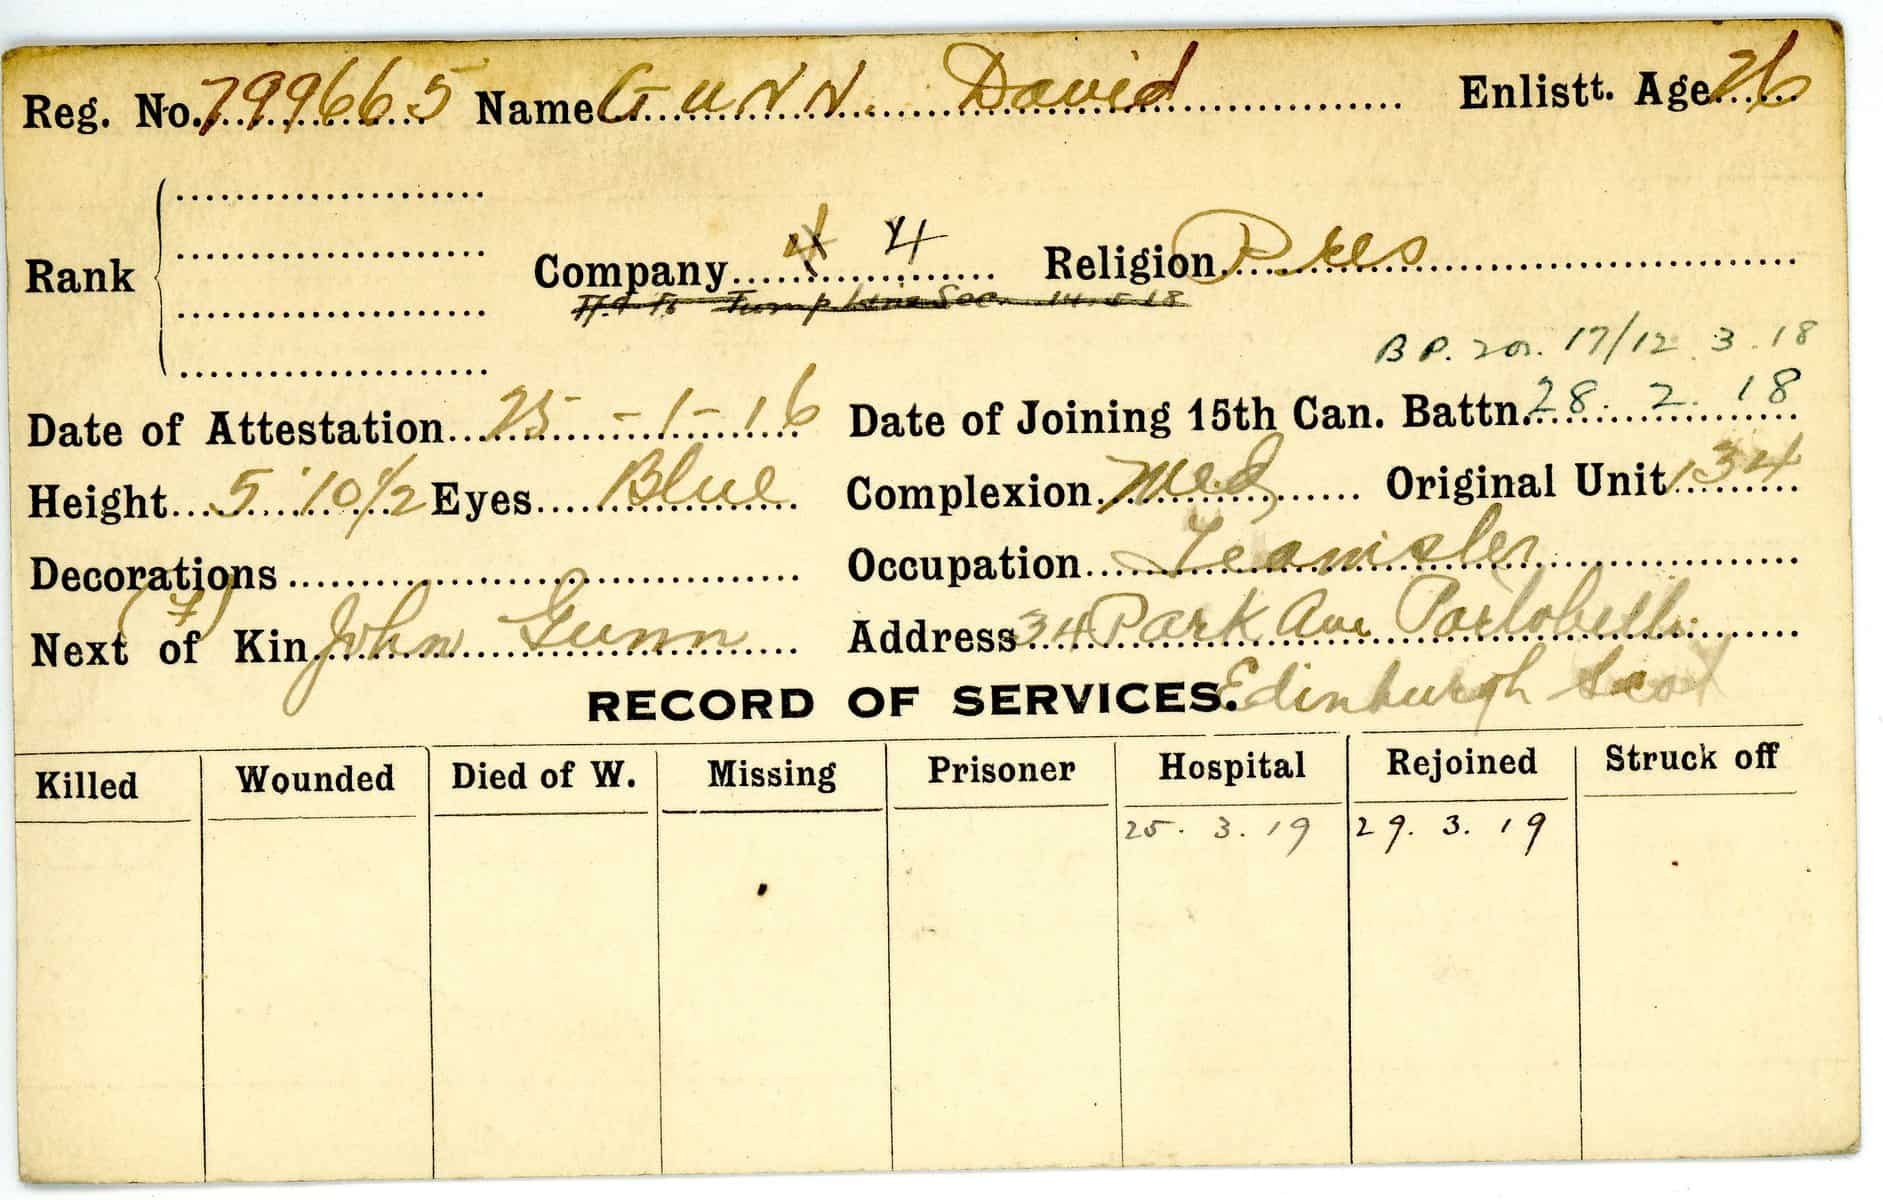 Reg. No. 799665 Name GUNN. David Enlistt. Age 26
Rank
Company 4 4 Religion Pres
Tump Line Sec. 14.5.18
B P. 2 or. 17/12.3.18
Date of Attestation 25-1-16 Date of Joining 15th Can. Battn. 28.2.18
Height 5'10½ Eyes Blue Complexion Med, Original Unit 134
Decorations Occupation Teamster
(F)
Next of Kin John Gunn Address 34 Park Ave Portobello
RECORD OF SERVICES. Edinburgh Scot
Killed Wounded Died of W. Missing Prisoner Hospital Rejoined Struck off
25. 3. 19 29. 3. 19